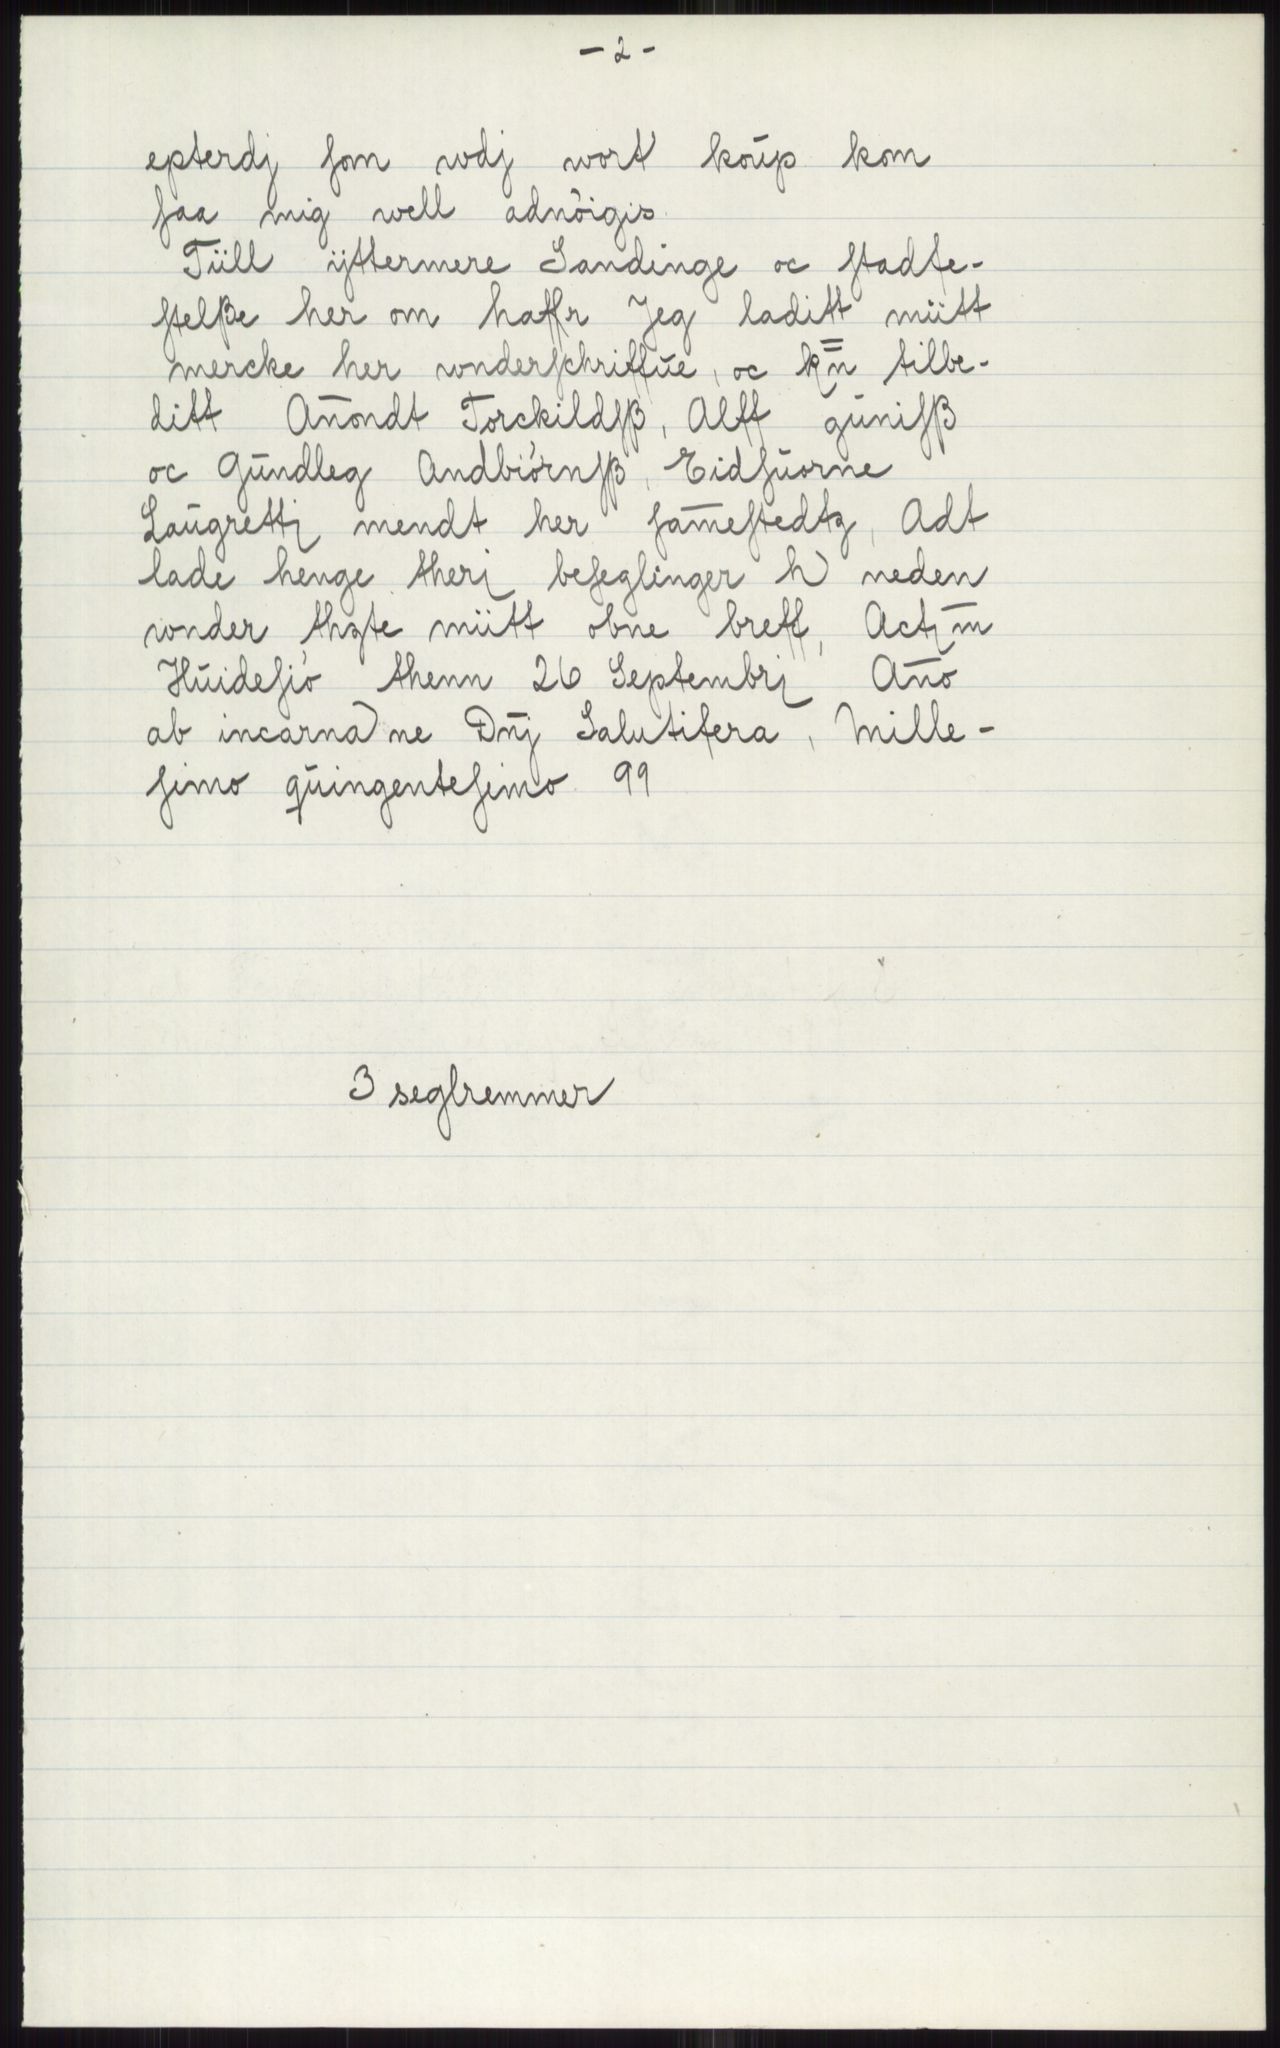 - 2 -
epterdj ſom wdj wort koŭp kom
ſaa mig well adnöigis
Tüll ÿttermere Sandinge oc ſtadfe-
ſtelße her om haffr Jeg laditt mütt
mercke her wnderſchriffŭe, oc tilbe-
ditt An̄ondt Torckildſß, Alff gŭniſß
oc Gŭndleg Andbiórnſß, Eidſŭorne
Laŭgrettj mendt her ſam̄eſtedtz, Adt
lade henge therj beſeglinger h) neden
wnder thzte mütt obne breff, Actj m̄
Hŭideſió thenn 26 Septembrj An̄o
ab incarna)ne Dn̄j Salutifera, Mille-
ſimo qŭingenteſimo 99
3 seglremmer